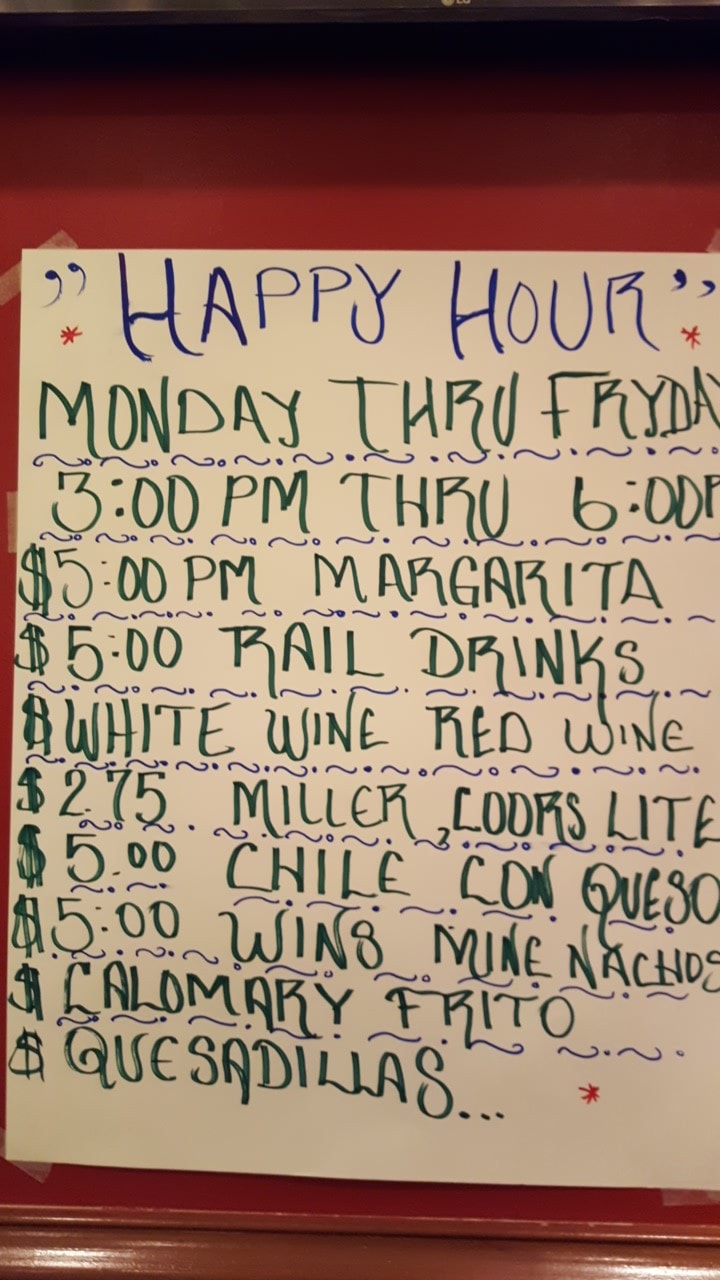 ,, HAPPY HOUR ,,
MONDAY THRU FRYDAY
3:00 PM THRU 6:00P
$5:00 PM MARGARITA
$5:00 RAIL DRINKS
$WHITE WINE RED WINE
$2.75 MILLER, COORS LITE
$5.00 CHILE CON QUESO
$5:00 WINS MINE NACHOS
$ CALOMARY FRITO
$ QUESADILLAS...